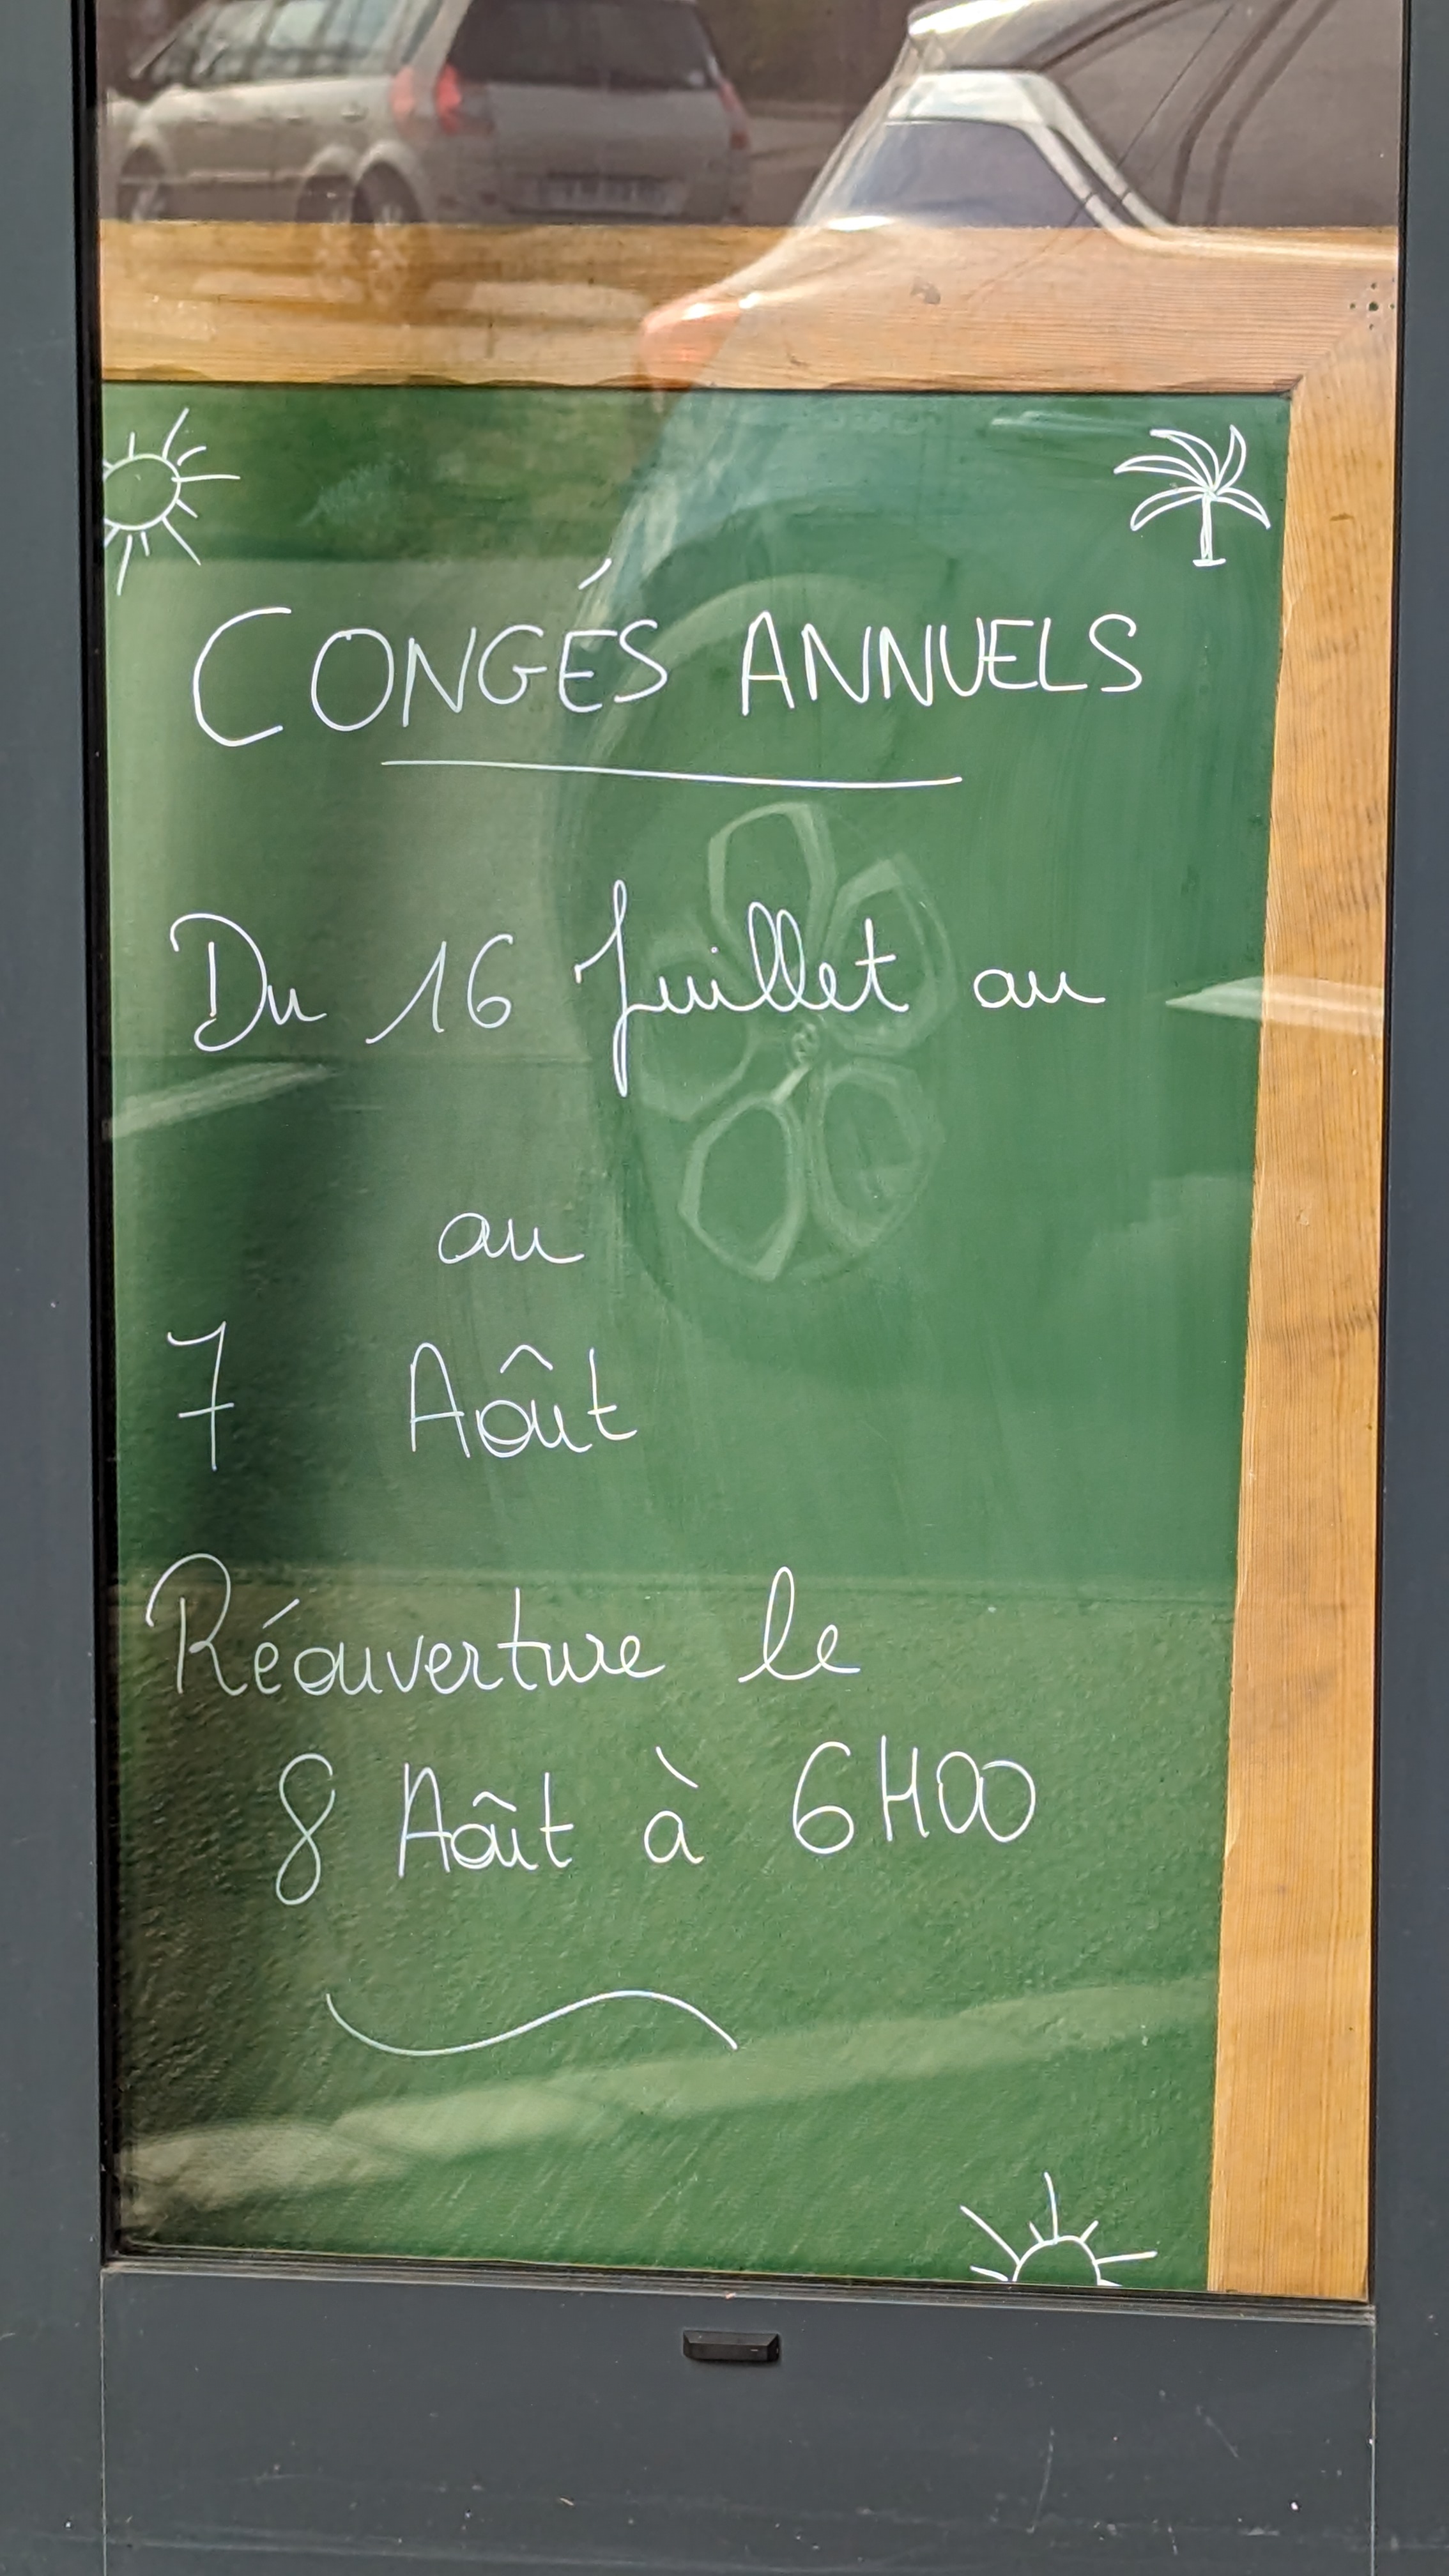 CONGÉS ANNUELS
Du 16 Juillet au
au
7 Août
Réouverture le
8 Août à 6H00